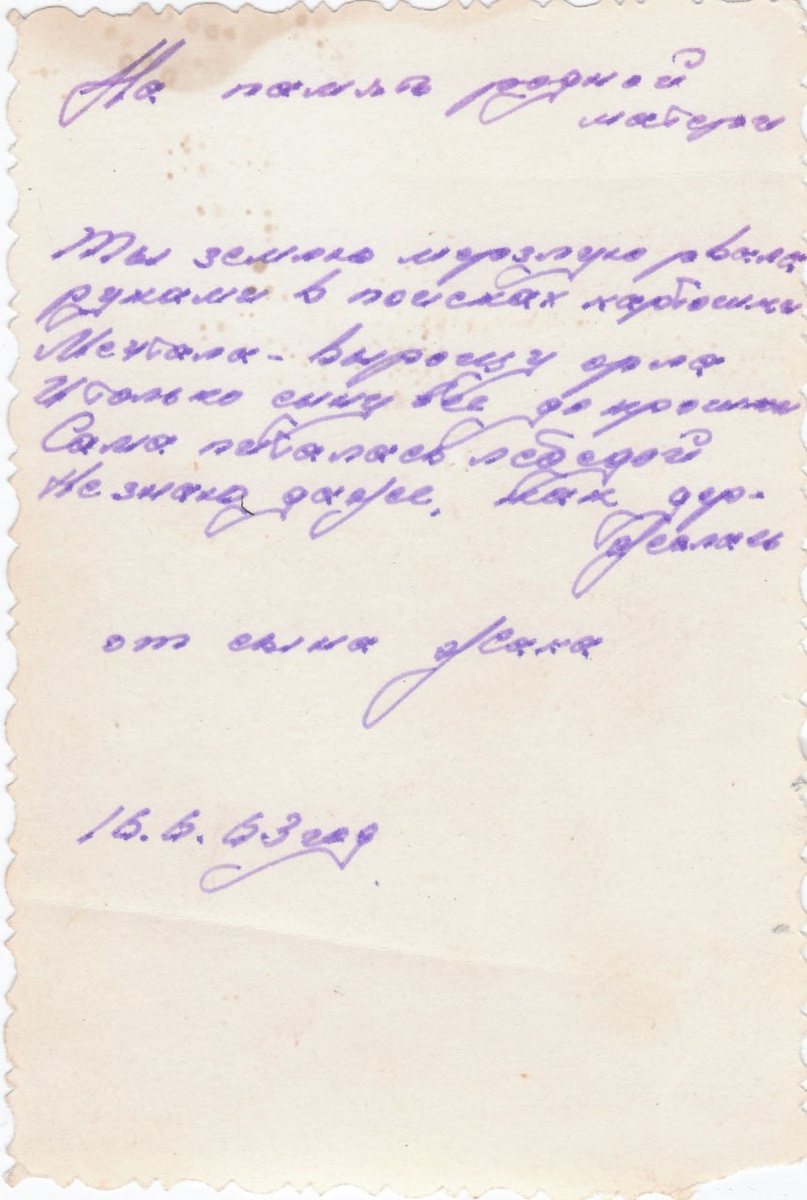 На память родной
матери
Ты землю мерзлую рвала
руками в поисках картошки
Мечтала - выращу орла
И только сыну всё до крошки
Сама питалась лебедой
Не знаю даже, как дер-
жалась
от сына Жака
16.6.63 год